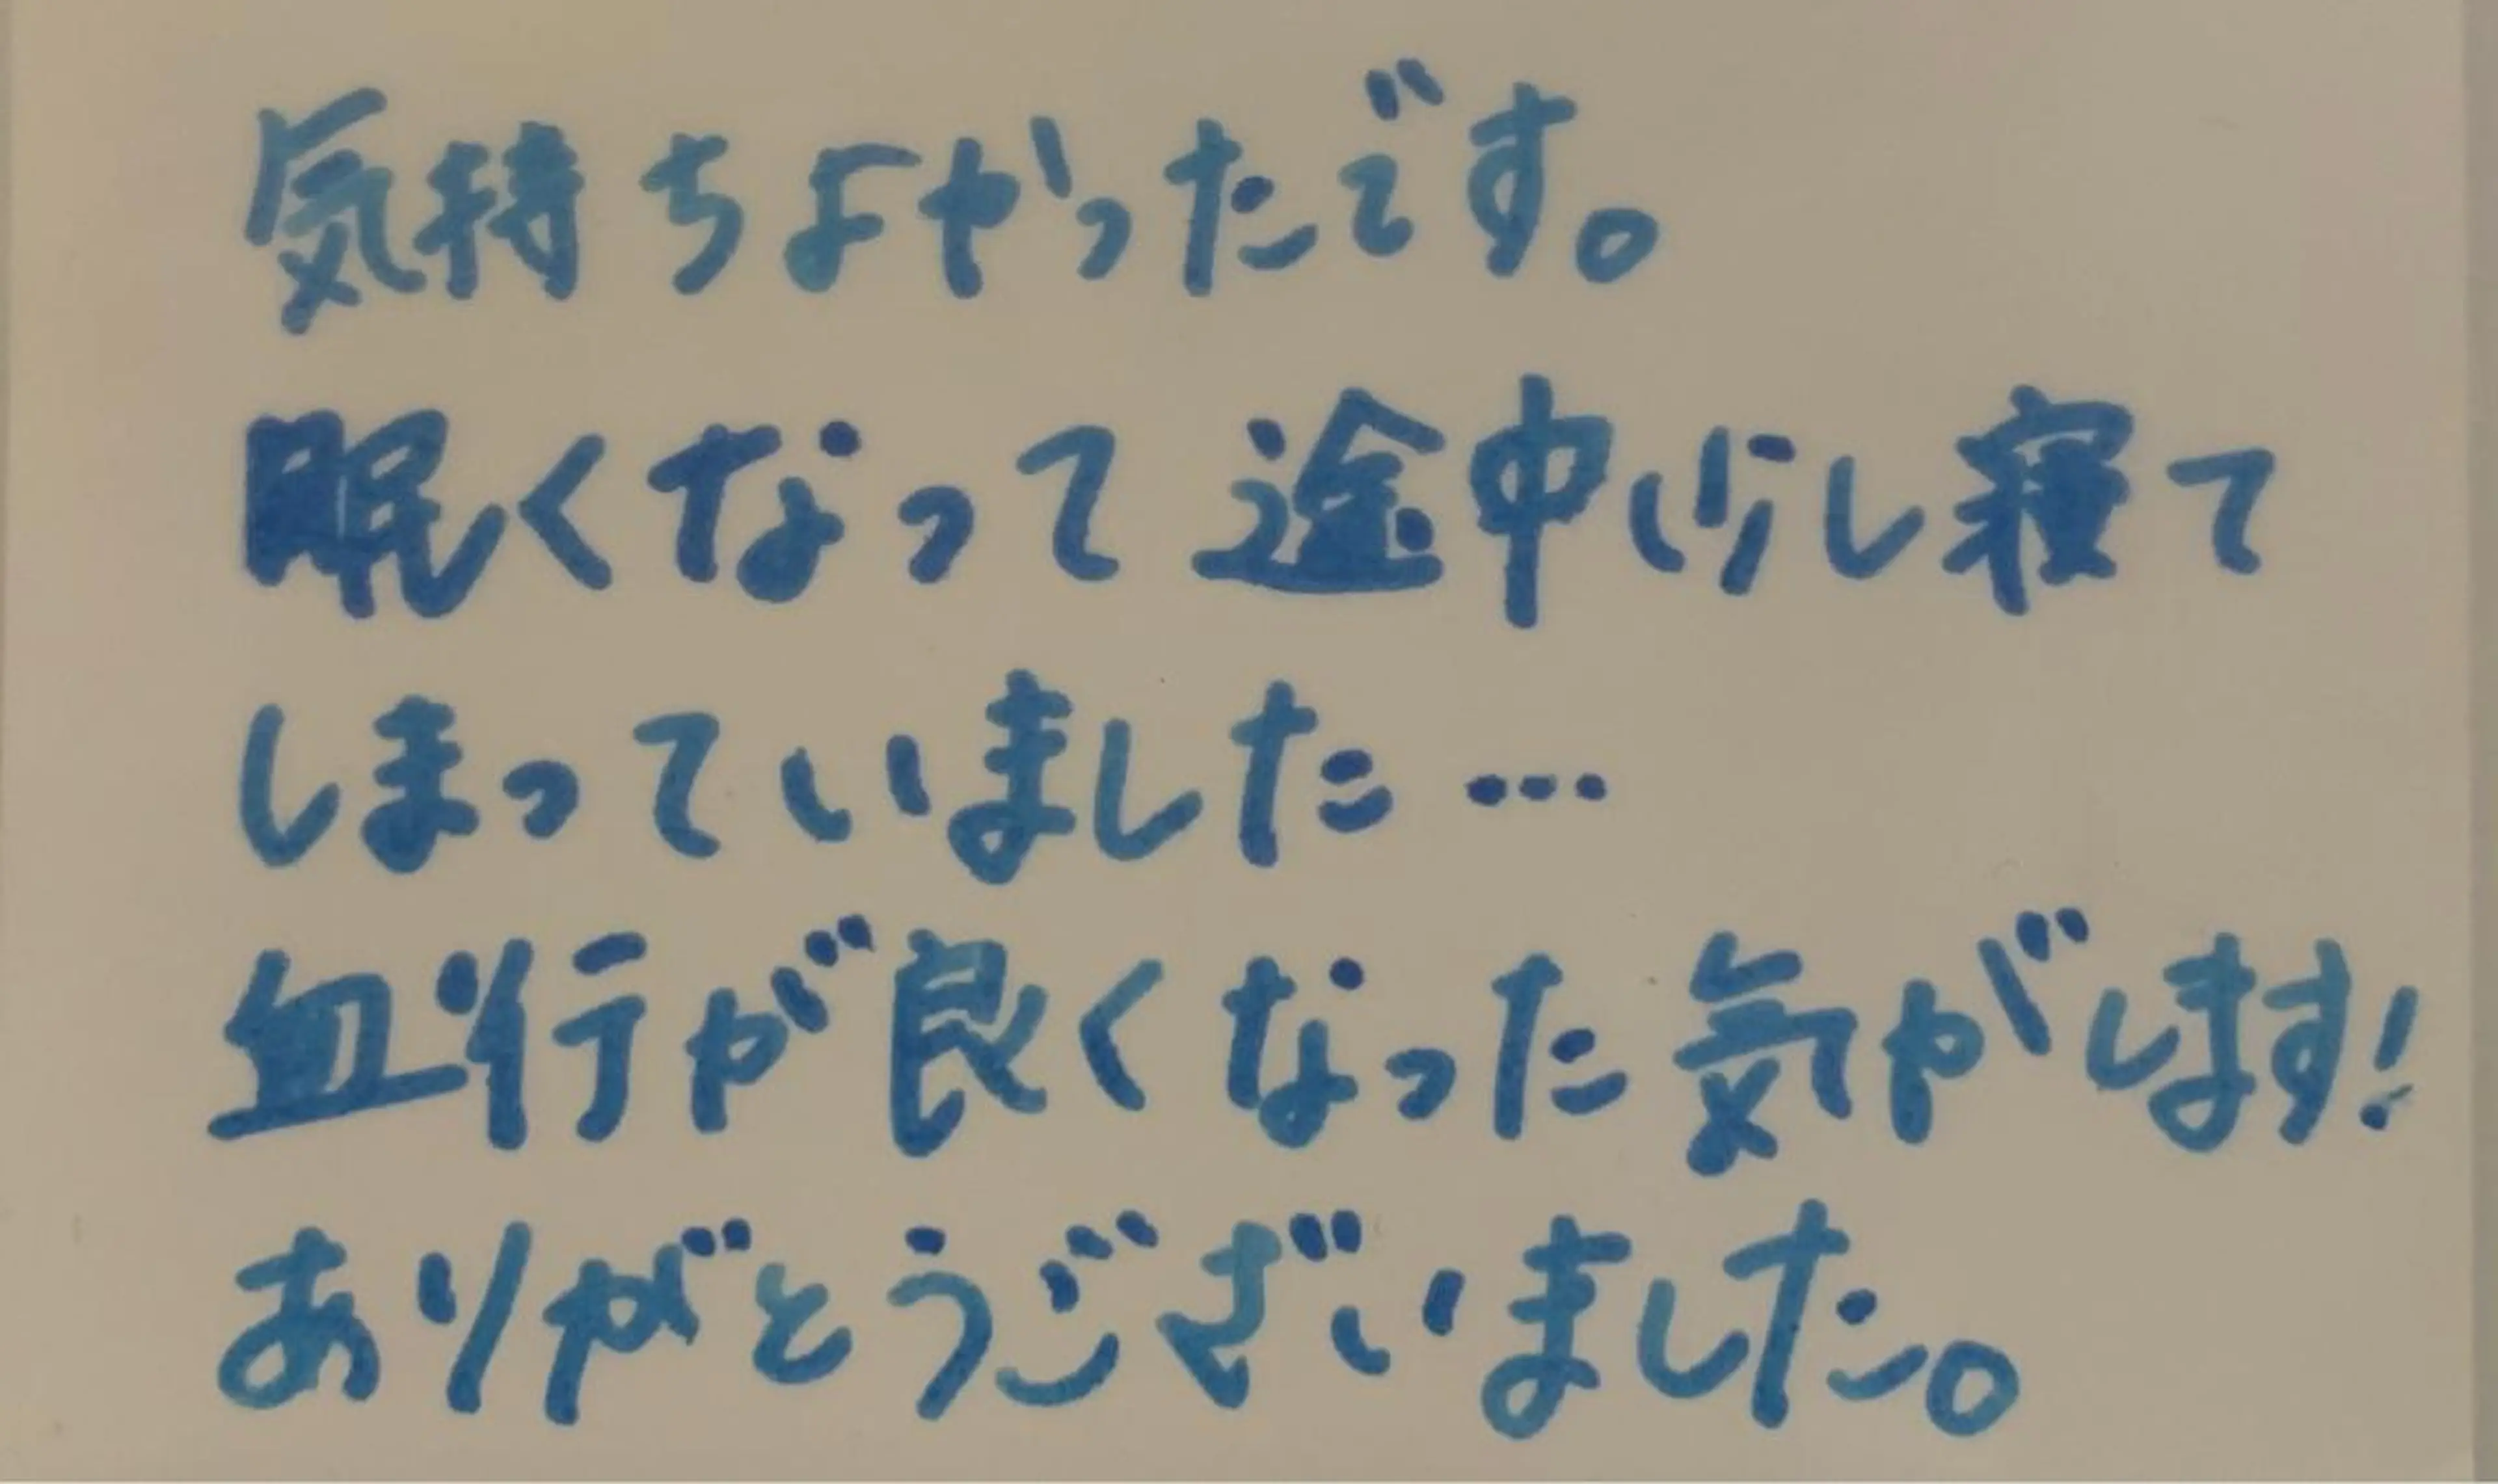 気持ちよかったです。
眠くなって途中少し寝て
しまっていました…
血行が良くなった気がします!
ありがとうございました。